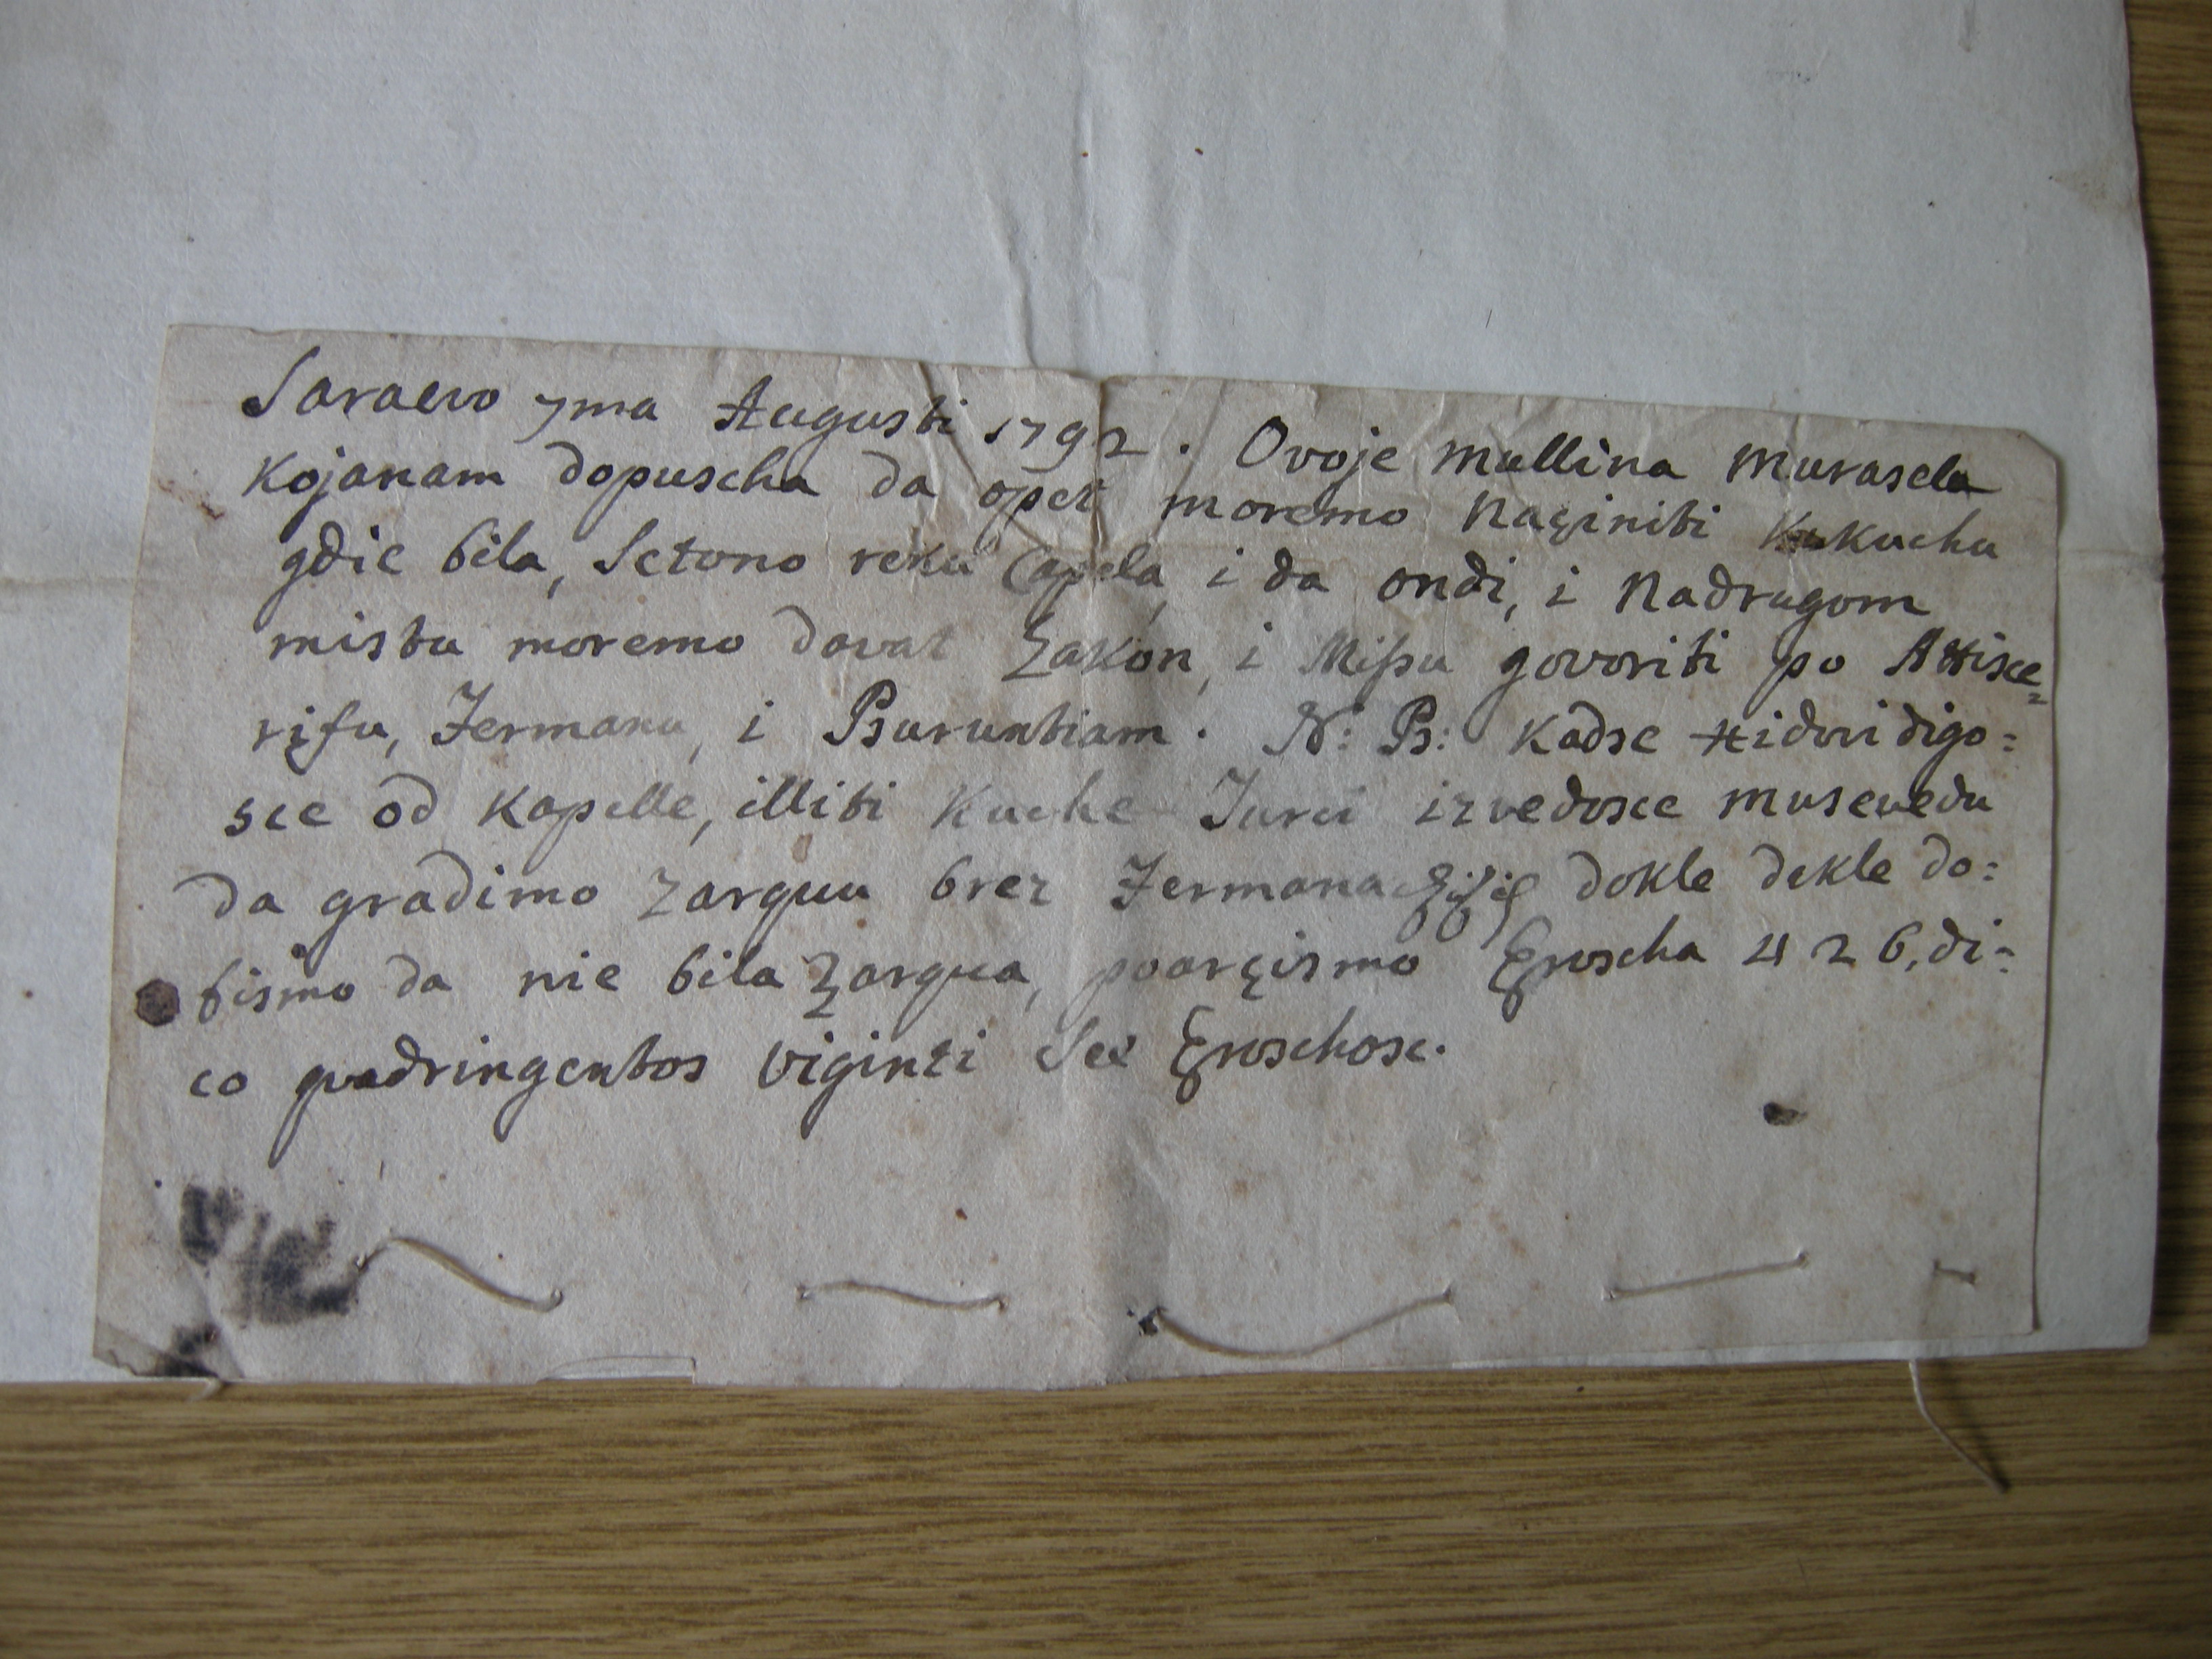 Saraevo 7ma Augusti 1792. Ovoje mullina murasela
kojanam dopuscha da opet moremo naçiniti kuchu
gdie bila, sctono reku Capela, i da ondi, i nadrugom
mistu moremo davat zakon, i Missu govoriti po Attisce=
rifu, Fermanu, i Buruntiam. N: B: kadse Hidovi digo=
sce od kapelle, illiti kuche Turci izvedosce musevedu
da gradimo zarquu brez Fermana dokle dekle do=
bismo da nie bila zarqua, poarçismo Groscha 426, di=
co quadringentos viginti sex Groschosc.